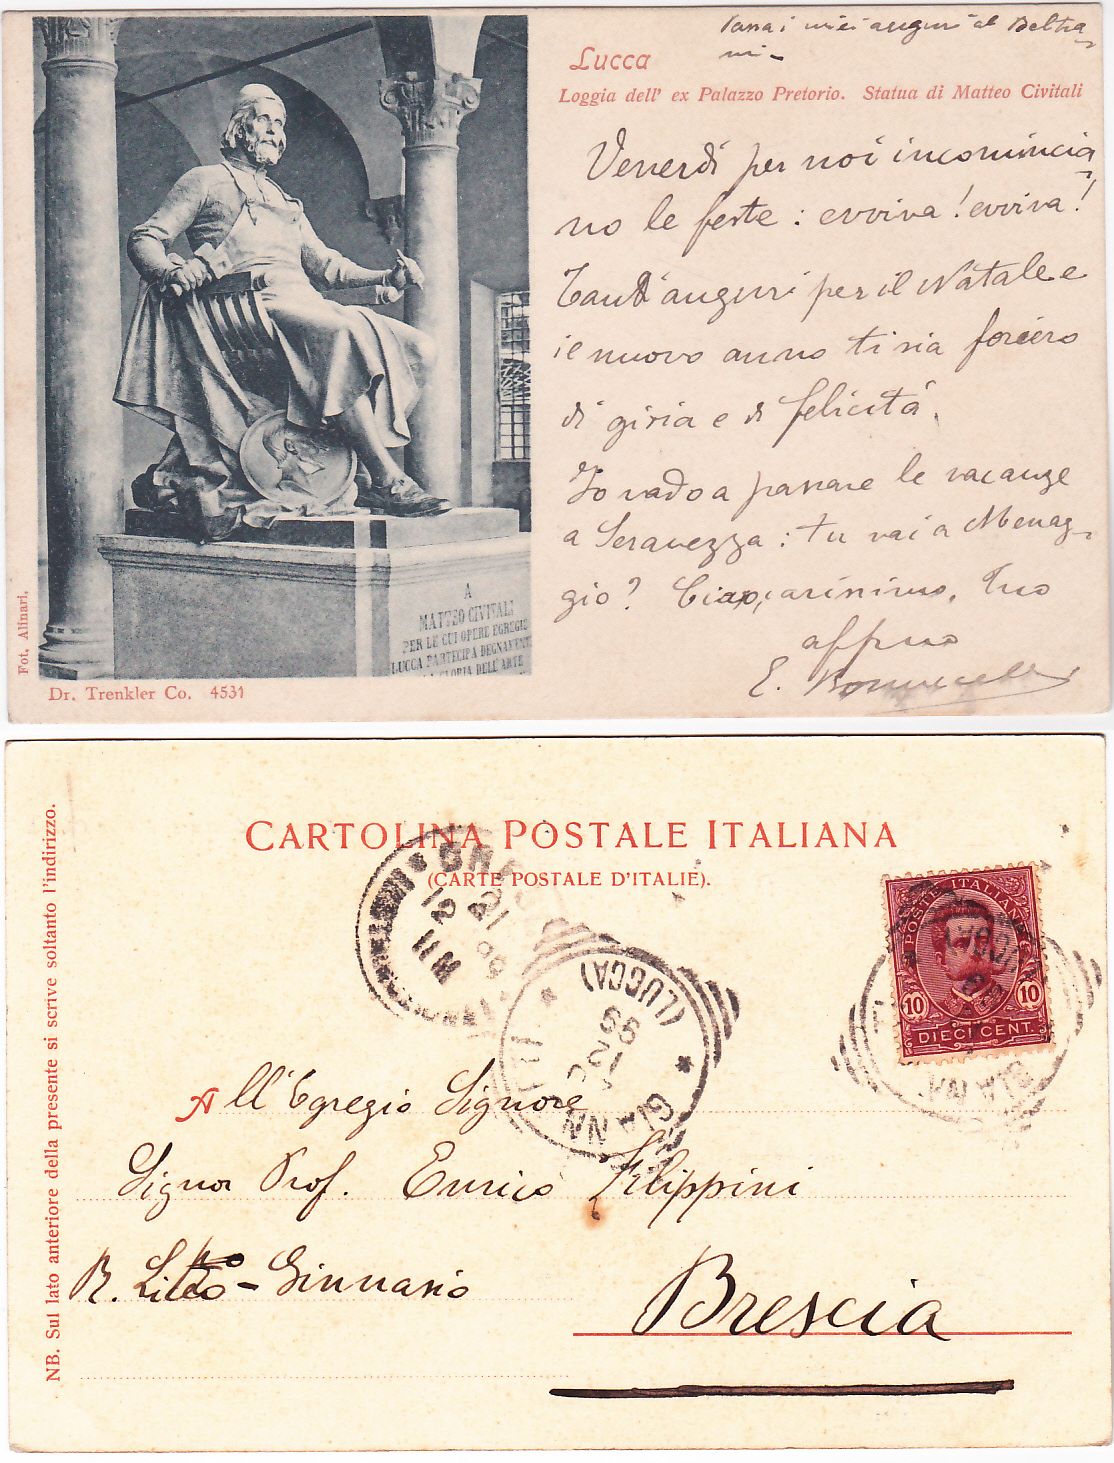 Passa i miei auguri al Beltra-
mi -
Lucca
Loggia dell' ex Palazzo Pretorio. Statua di Matteo Civitali
Venerdì per noi incomincia-
no le feste : evviva ! evviva !
Tanti auguri per il Natale e
il nuovo anno ti sia foriero
di gioia e di felicità.
Io vado a passare le vacanze
a Seravezza : tu vai a Menag-
gio ? Ciao, carissimo. Tuo
affmo
E.
A
MATTEO CIVITALI
PER LE CUI OPERE EGREGIE
LUCCA PARTECIPA DEGNAMENTE
GLORIA DELL'ARTE
Fot. Alinari.
Dr. Trenkler Co. 4531
CARTOLINA POSTALE ITALIANA
(CARTE POSTALE D'ITALIE).
NB. Sul lato anteriore della presente si scrive soltanto l'indirizzo.
POSTE ITALIANE
10 10
DIECI CENT.
12 99
(LUCCA)
99
All' Egregio Signore
Signor Prof. Enrico Filippini
R. Liceo - Ginnasio
Brescia